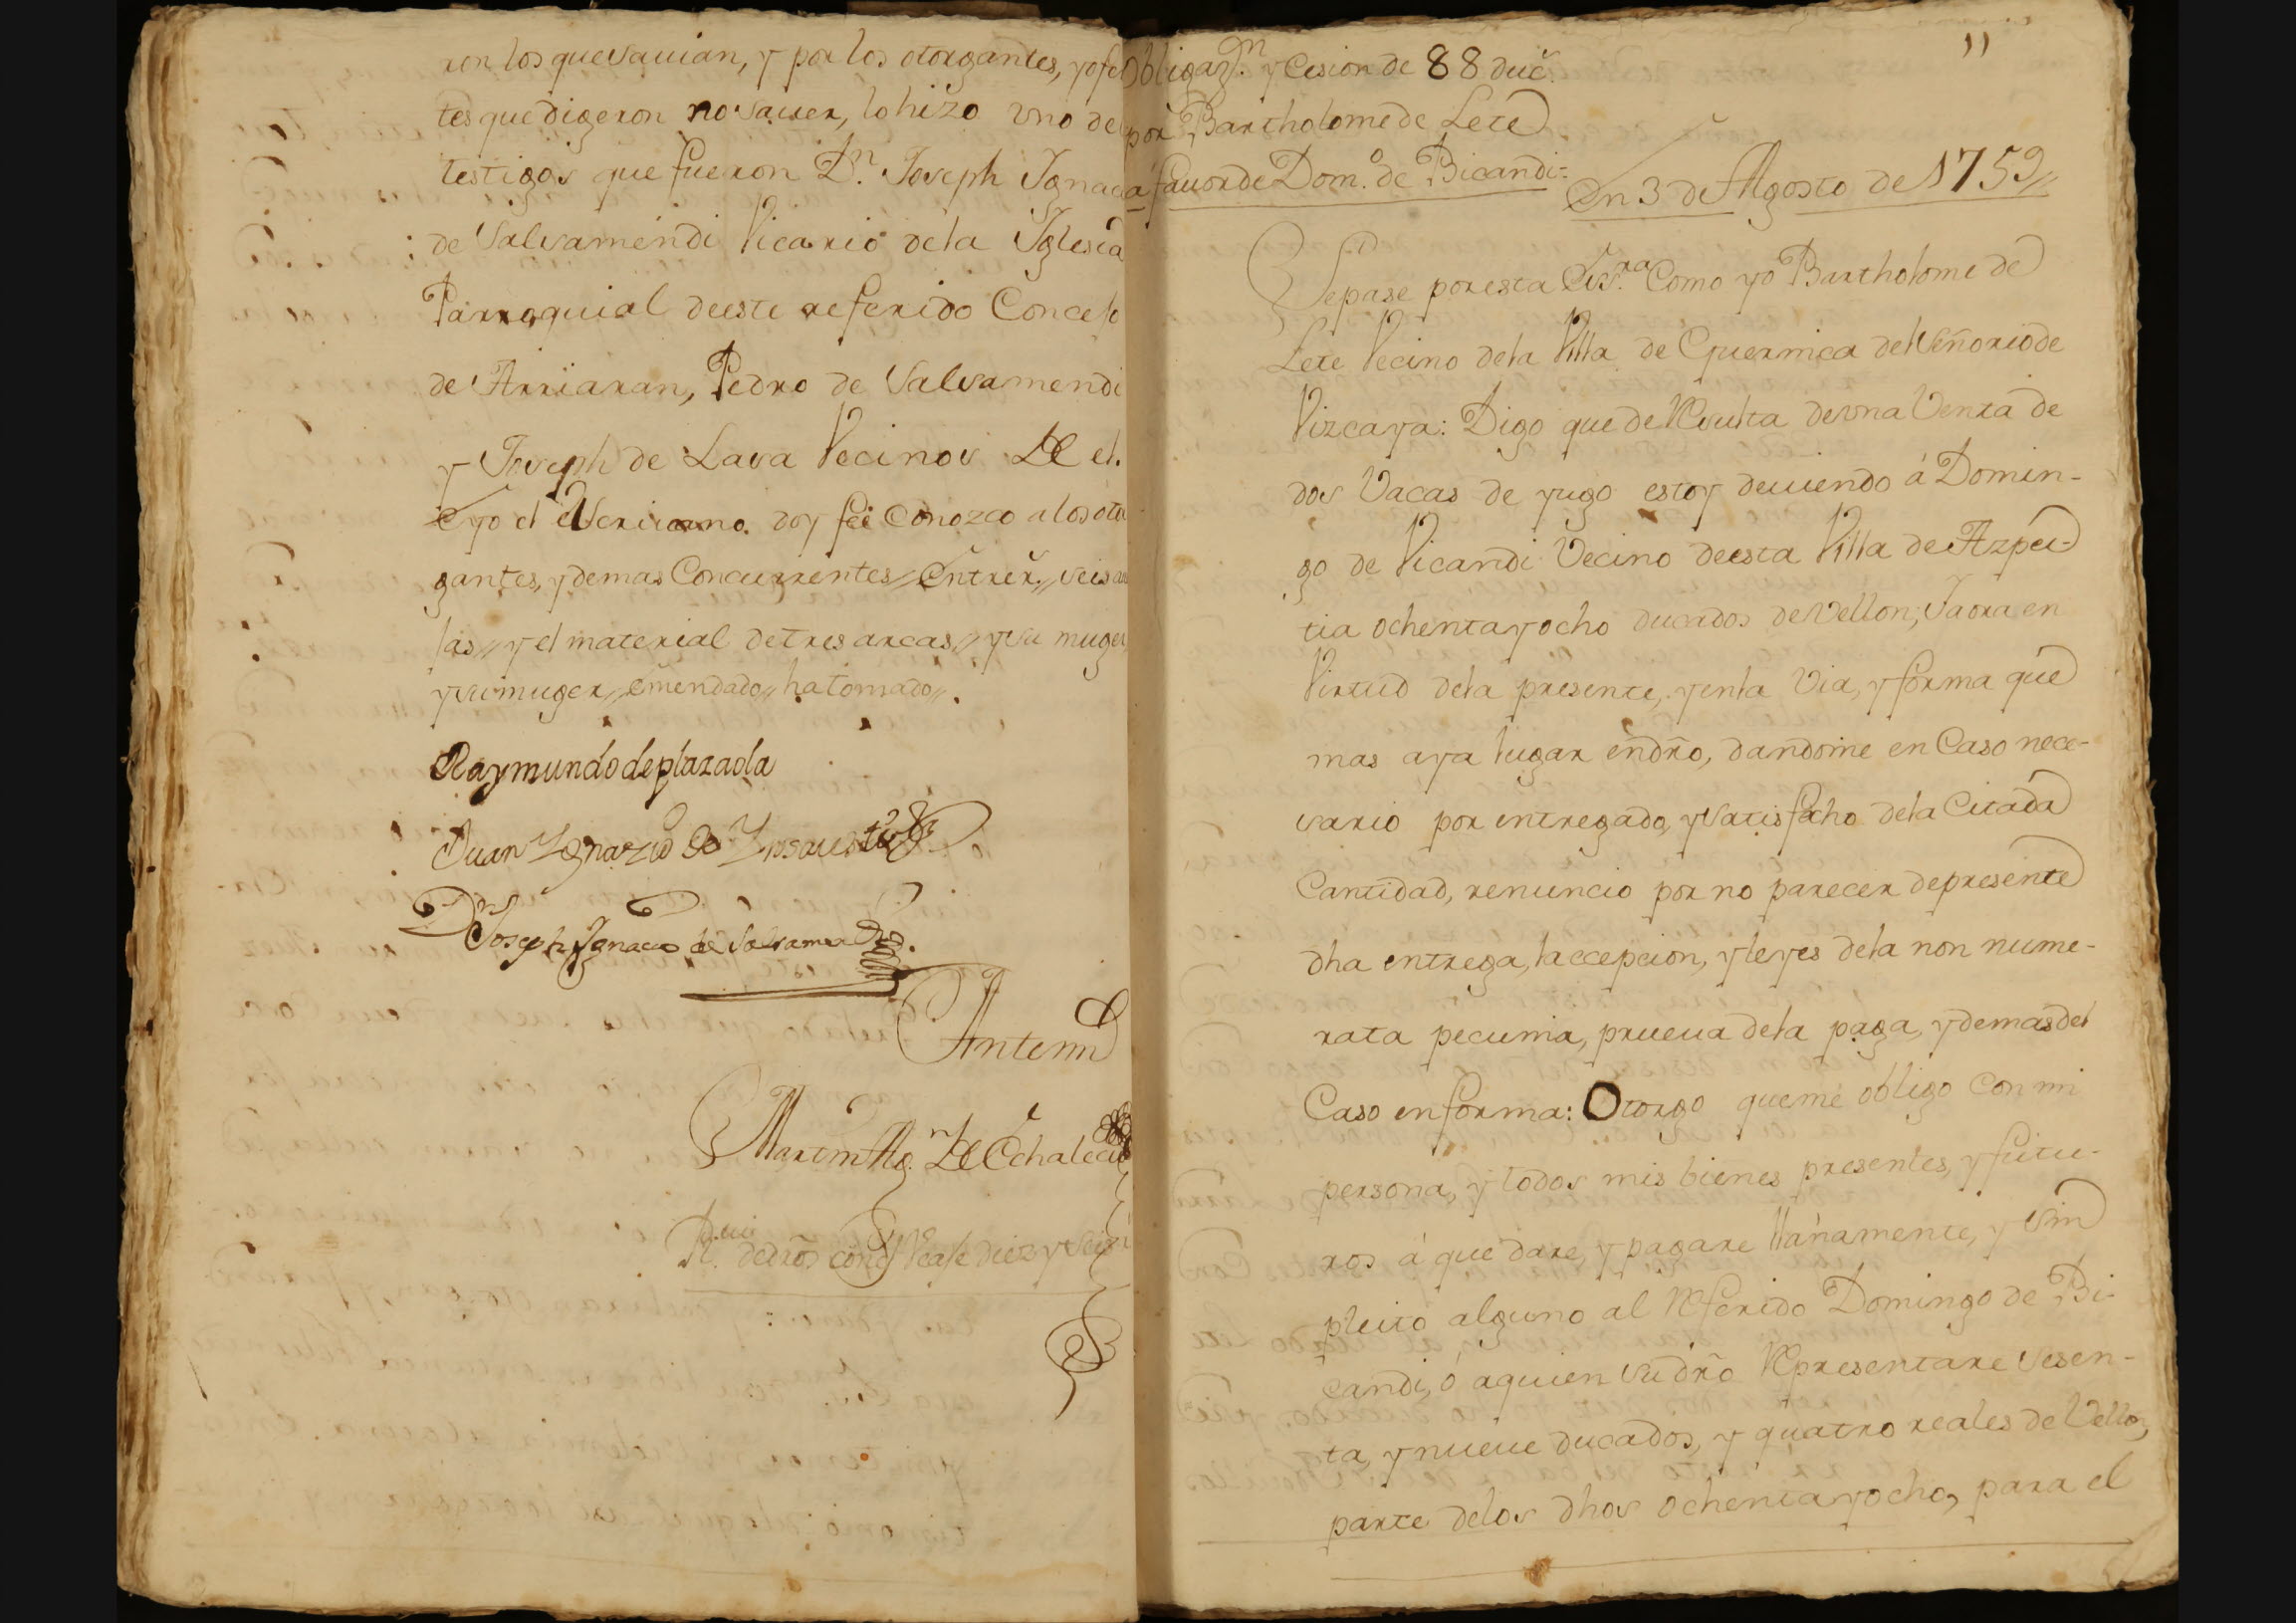 ron los que savian, y por los otorgantes, y ofe
tes que digeron no saver, lo hizo uno de
testigos que fueron Dn. Joseph Ygnacio
de Salsamendi Vicario de la Yglesia
Parroquial de este referido Concejo
de Arriaran, Pedro de Salsamendi
y Joseph de Lasa Vecinos De el.
e yo el Escrivano doy fee conozco a los oto
gantes, y demas Concurrentes // Entrerr. // seis
las // y el material de tres arcas // y su muger
y su muger // enmendado // ha tomado //.
Raymundo de plazaola
Juan Ygnazio de
Dn Joseph Ygnacio de Salsamendi
Ante mi
Martin Agn. De Echalecu
dedros. conf. Reale diez y seis
11
Obligazn. y Cesion de 88 duc.
por Bartholome de Lete
a favor de Domo. de Bicandi:
En 3 de Agosto de 1759 //
Sepase por esta Essra. Como yo Bartholome de
Lete Vecino de la Villa de Guernica del Señorio de
Vizcaya: Digo que de Resulta de una Venta de
dos Vacas de yugo estoy deviendo á Domin-
go de Vicandi Vecino de esta Villa de Azpei-
tia ochenta y ocho ducados de Vellon, Yaora en
Virtud de la presente, y en la Via, y forma que
mas aya lugar en dro, dandome en Caso nece-
sario por entregado, y satisfecho de la Citada
Cantidad, renuncio por no parecer de presente
dha entrega, la ecepcion, y leyes de la non nume-
rata pecunia, prueva de la paga, y demas del
Caso en forma: Otorgo que me obligo con mi
persona, y todos mis bienes presentes, y futu-
ros á que dare, y pagare llanamente, y sin
pleito alguno al Referido Domingo de Bi-
candi, ó a quien su dro Representare sesen-
ta, y nueve ducados, y quatro reales de Vellon,
parte de los dhos ochenta y ocho, para el